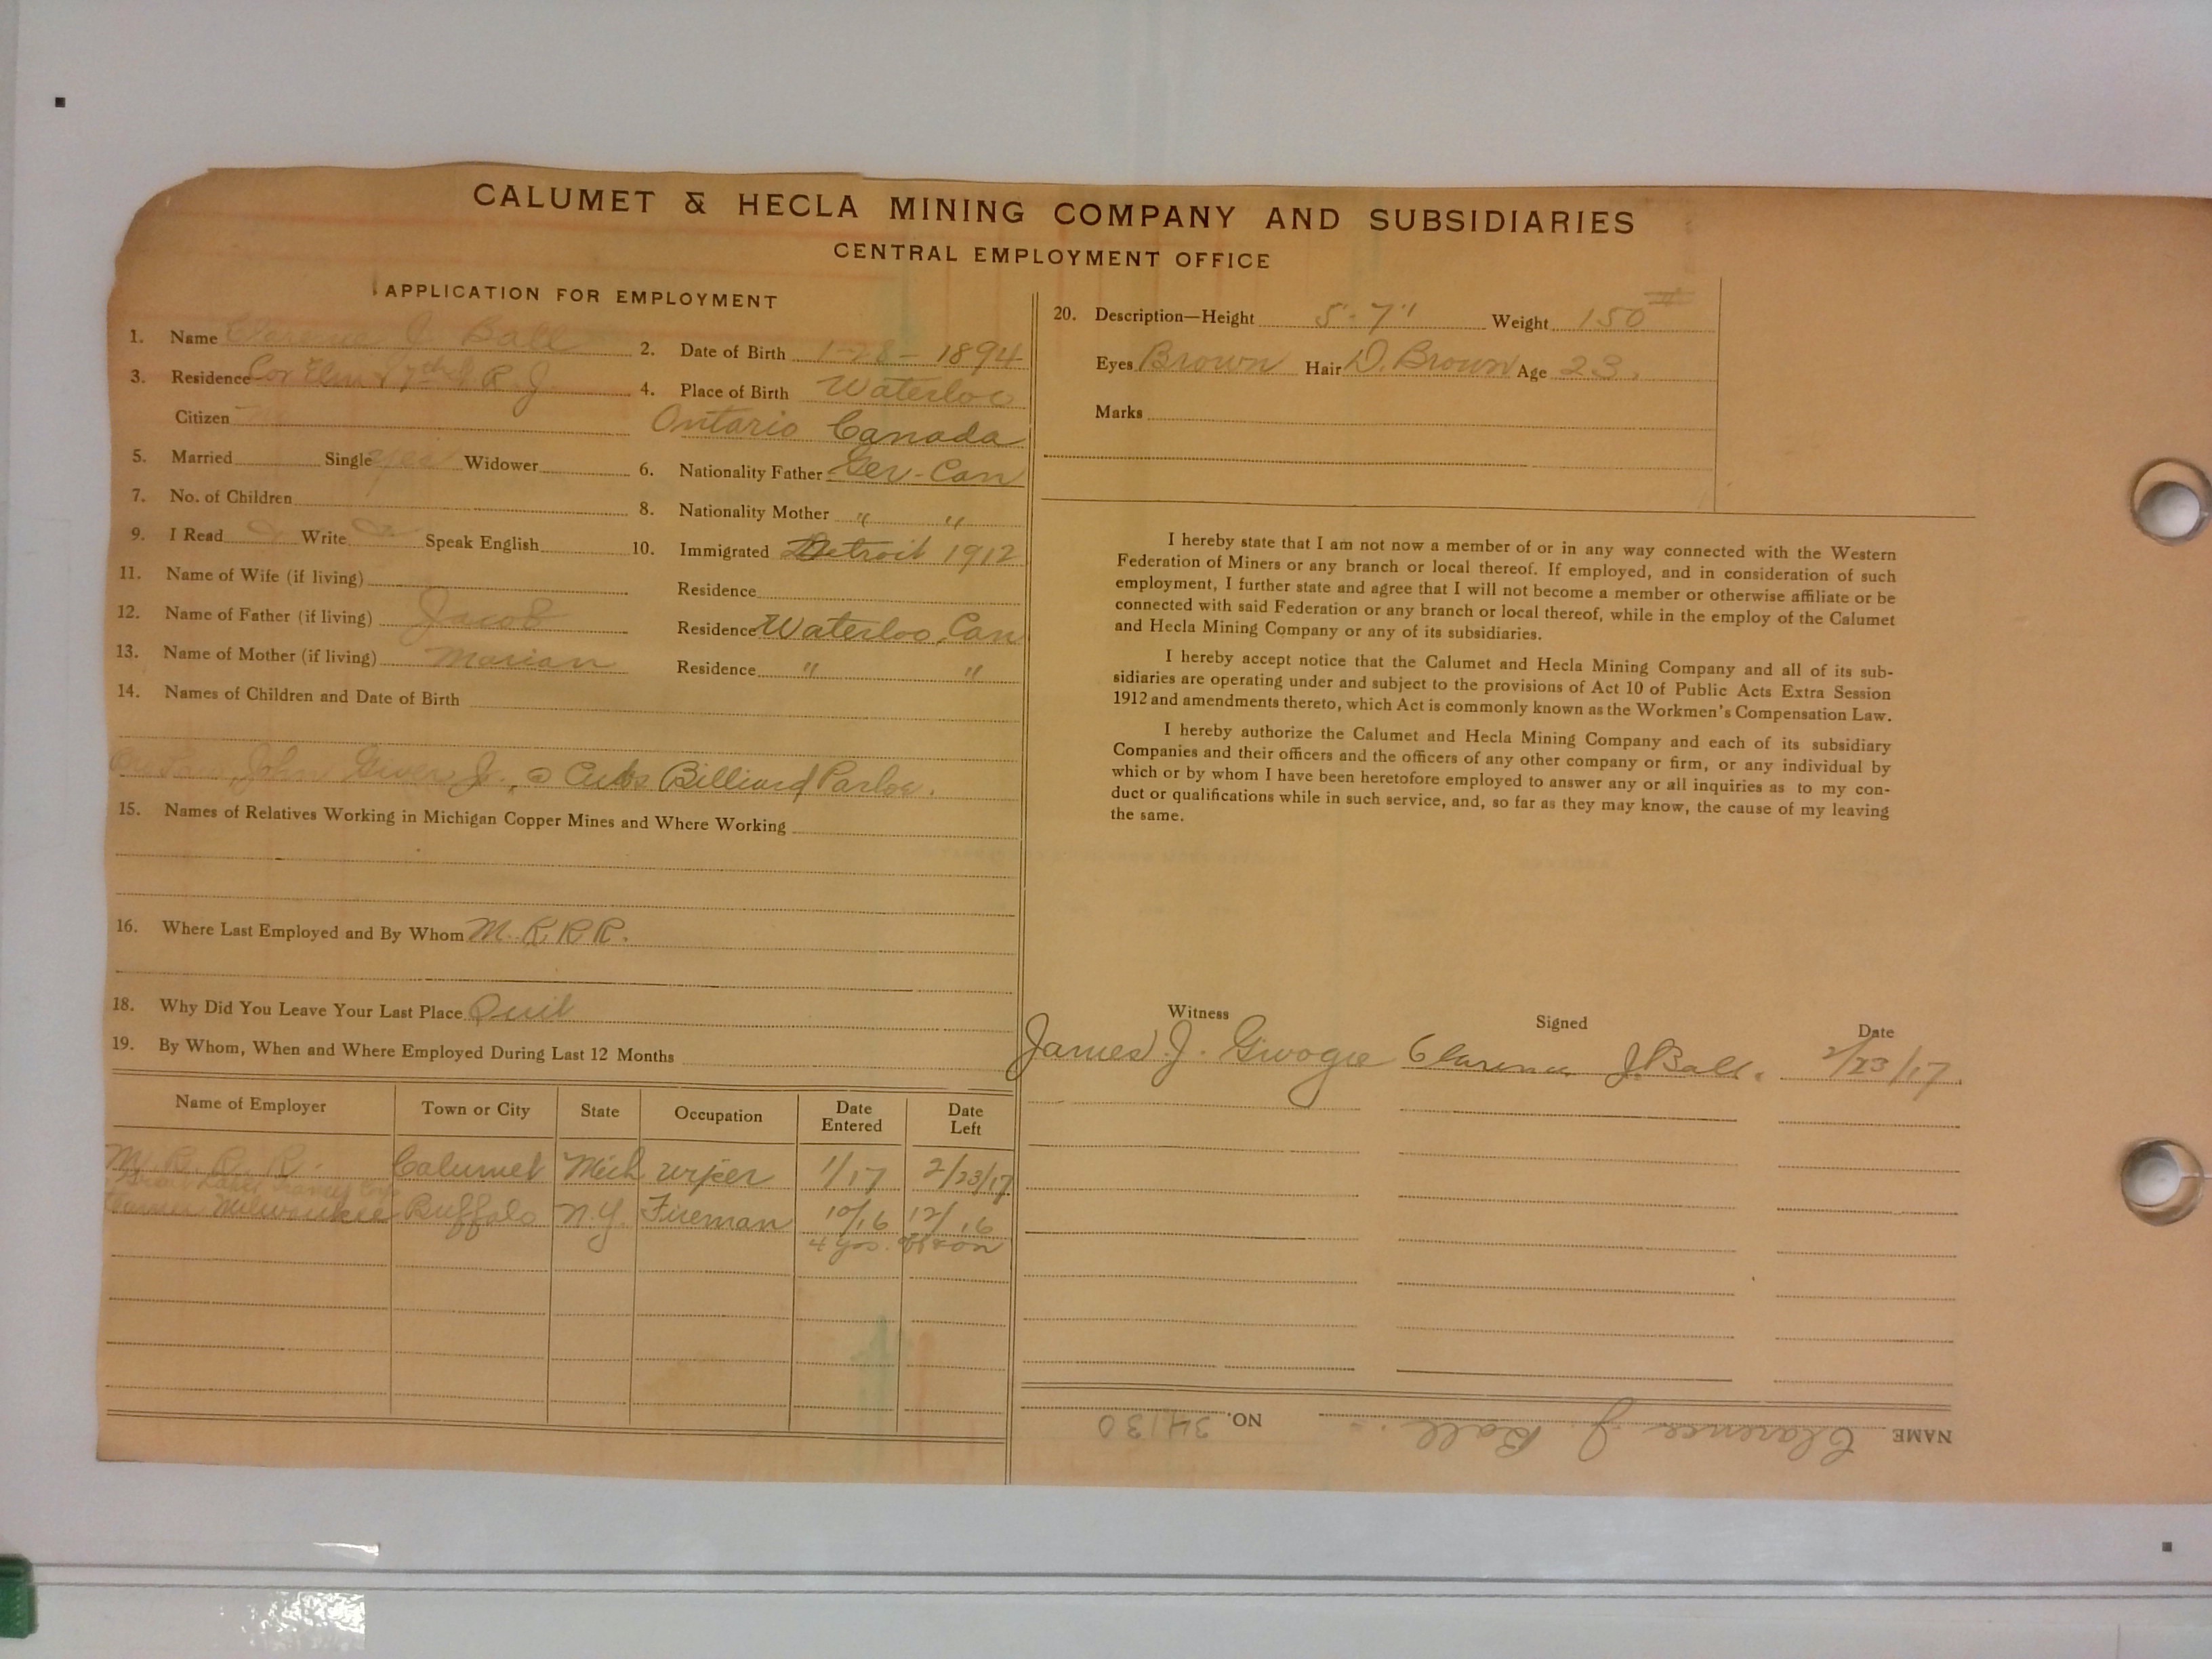 CALUMET & HECLA MINING COMPANY AND SUBSIDIARIES
CENTRAL EMPLOYMENT OFFICE
APPLICATION FOR EMPLOYMENT
1. Name Clarence J. Ball
2. Date of Birth 1-28-1894
3. Residence Cor Elm & 7th R. J.
4. Place of Birth Waterloo
Citizen
Ontario Canada
5. Married Single yes Widower
6. Nationality Father Ger-Can
7. No. of Children
8. Nationality Mother " "
9. I Read Write Speak English
10. Immigrated Detroit 1912
11. Name of Wife (if living)
Residence
12. Name of Father (if living) Jacob
Residence Waterloo, Can
13. Name of Mother (if living) Marian
Residence " "
14. Names of Children and Date of Birth
John Jr., Billiard Parlor.
15. Names of Relatives Working in Michigan Copper Mines and Where Working
16. Where Last Employed and By Whom M. R. R. R.
18. Why Did You Leave Your Last Place Quit
19. By Whom, When and Where Employed During Last 12 Months
Name of Employer Town or City State Occupation Date Entered Date Left
M. R. R. R. Calumet Mich wiper 1/17 2/23/17
Milwaukee Buffalo N.Y. Fireman 10/16 12/16
4 yrs.
20. Description—Height 5'-7" Weight 150 #
Eyes Brown Hair D. Brown Age 23.
Marks
I hereby state that I am not now a member of or in any way connected with the Western
Federation of Miners or any branch or local thereof. If employed, and in consideration of such
employment, I further state and agree that I will not become a member or otherwise affiliate or be
connected with said Federation or any branch or local thereof, while in the employ of the Calumet
and Hecla Mining Company or any of its subsidiaries.
I hereby accept notice that the Calumet and Hecla Mining Company and all of its sub-
sidiaries are operating under and subject to the provisions of Act 10 of Public Acts Extra Session
1912 and amendments thereto, which Act is commonly known as the Workmen's Compensation Law.
I hereby authorize the Calumet and Hecla Mining Company and each of its subsidiary
Companies and their officers and the officers of any other company or firm, or any individual by
which or by whom I have been heretofore employed to answer any or all inquiries as to my con-
duct or qualifications while in such service, and, so far as they may know, the cause of my leaving
the same.
Witness Signed Date
James J. Clarence J. Ball. 2/23/17
NAME Clarence J. Ball. NO. 34130